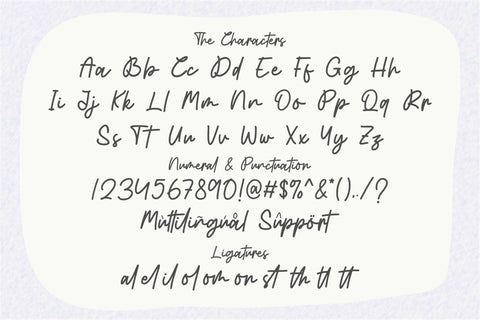 The Characters
Aa Bb Cc Dd Ee Ff Gg Hh
Ii Jj Kk Ll Mm Nn Oo Pp Qq Rr
Ss Tt Uu Vv Ww Xx Yy Zz
Numeral & Punctuation
1234567890!@#$%^&*()../?
Mùttilïñgúål Sûppört
Ligatures
al el il ol om on st th tl tt